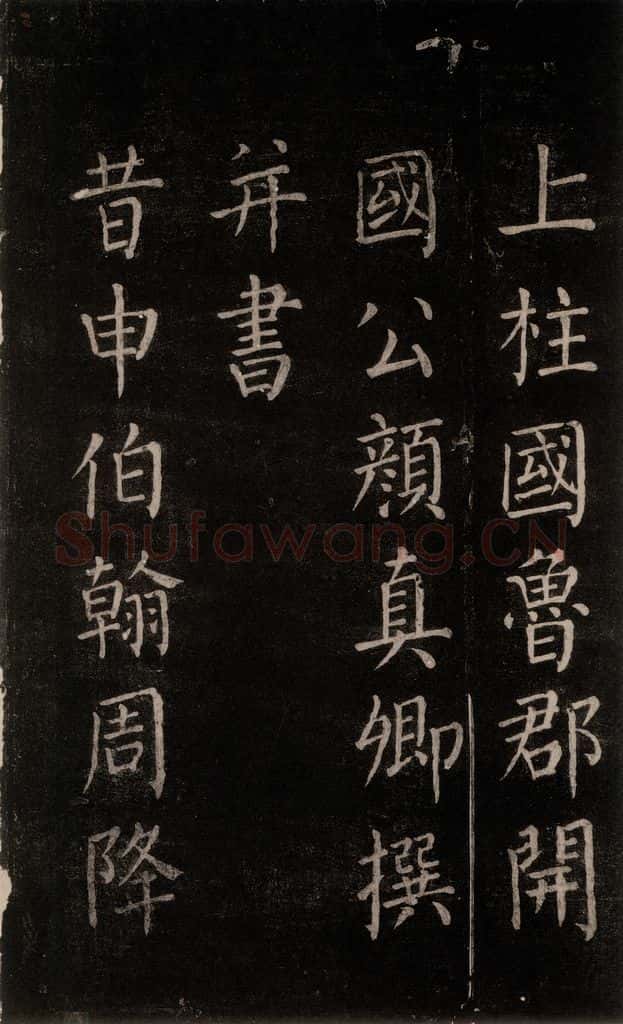 上柱國魯郡開
國公顏真卿撰
并書
昔申伯翰周降
Shufawang.CN